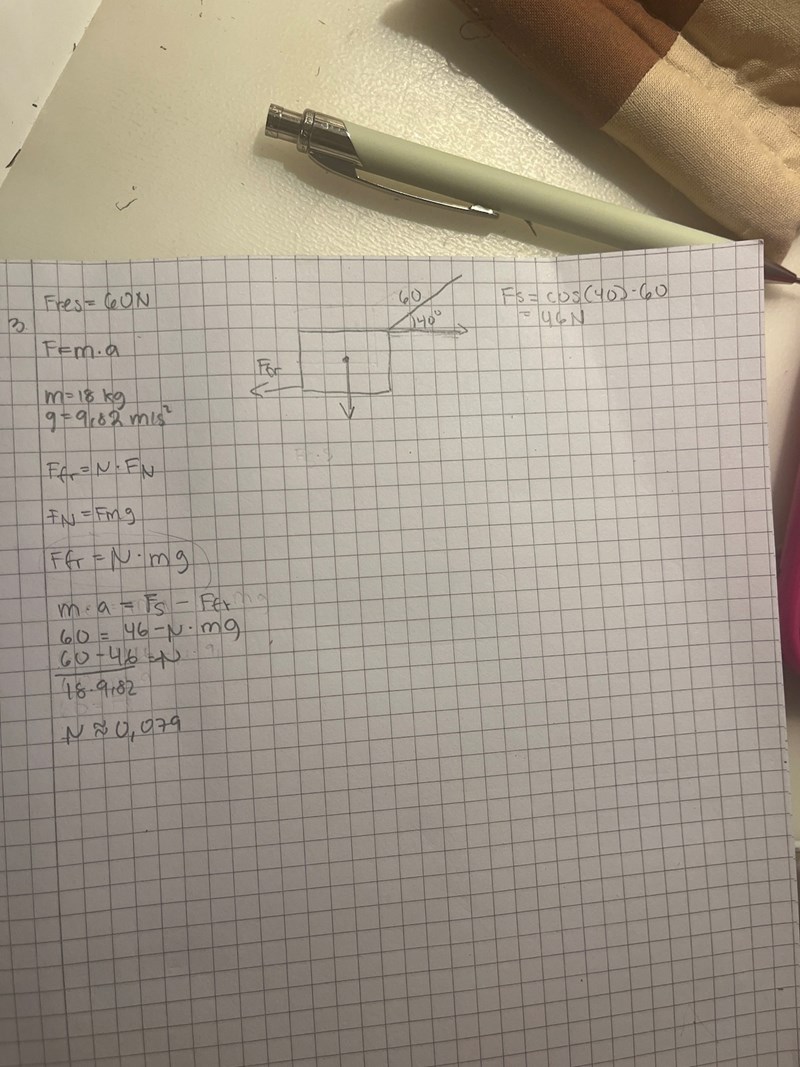 3.
Fres = 60N
F=m·a
m=18 kg
g=9,82 m/s²
Ffr = N·FN
FN = Fmg
Ffr = N·mg
m·a = Fs - Ffr
60 = 46 - N·mg
60-46 = N
18·9,82
N ≈ 0,079
60
40°
Ffr
Fs = cos(40)·60
= 46N